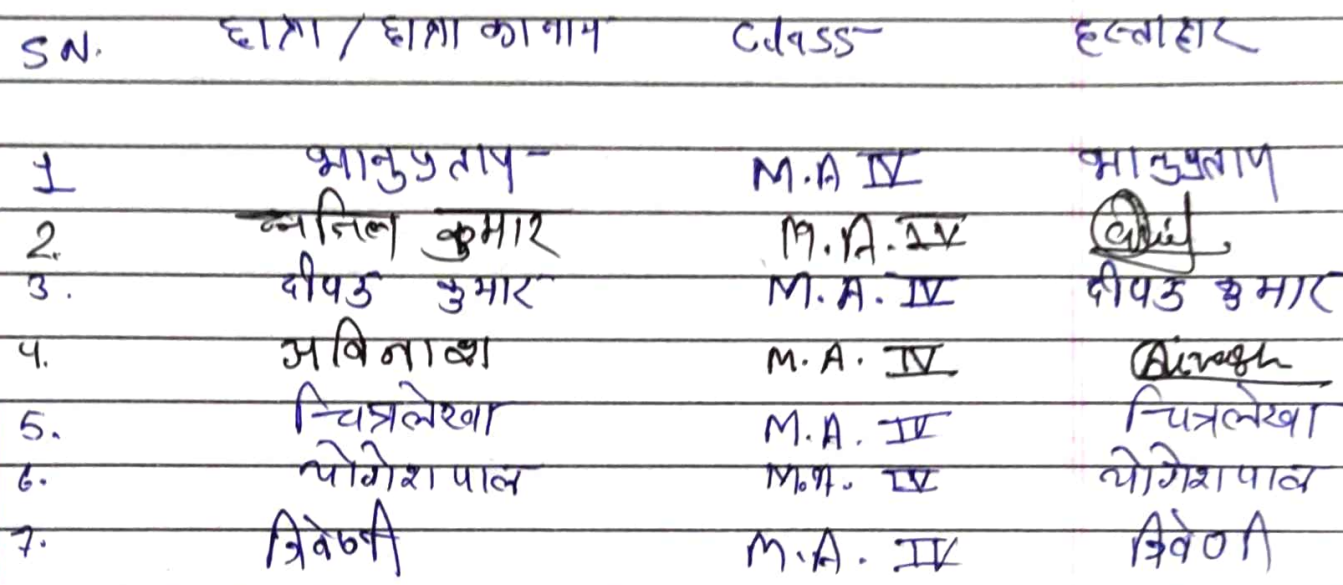 S.N. छात्र / छात्रा का नाम Class हस्ताक्षर
1 भानुप्रताप M.A IV भानुप्रताप
2. अनिल कुमार M.A. IV
3. दीपक कुमार M.A. IV दीपक कुमार
4. अविनाश M.A. IV
5. चित्रलेखा M.A. IV चित्रलेखा
6. योगेश पाल M.A. IV योगेश पाल
7. त्रिवेणी M.A. IV त्रिवेणी